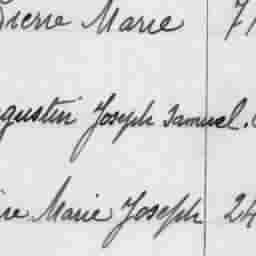 Pierre Marie 71
gustin Joseph Samuel.
re Marie Joseph 24